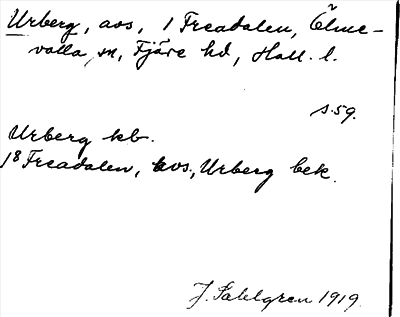 Urberg, avs, 1 Freadalen, Ölme-
valla sn, Fjäre hd, Hall. l.
s. 59.
Urberg kb.
18 Freadalen, avs., Urberg bek.
J. Sahlgren 1919.